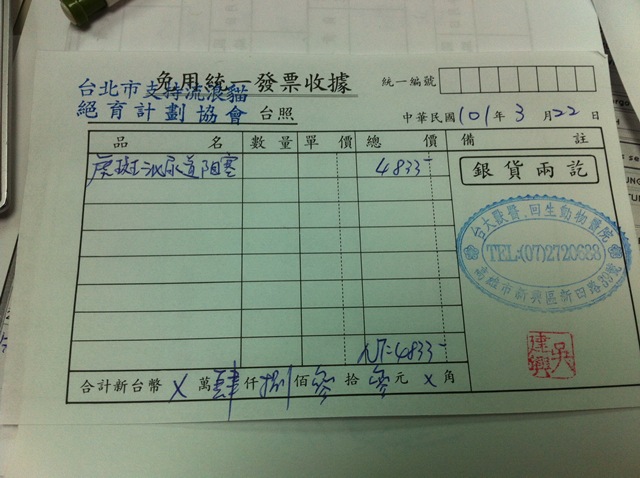 免用統一發票收據
統一編號
台北市支持流浪貓
絕育計劃協會 台照
中華民國101年3月22日
品名 數量 單價 總價 備註
虎斑泌尿道阻塞 4833-
銀貨兩訖
台大獸醫.回生動物醫院
TEL:(07)2720688
高雄市新興區新田路89號
NT=4833-
吳建興
合計新台幣 X 萬 肆 仟 捌 佰 零 拾 零 元 X 角